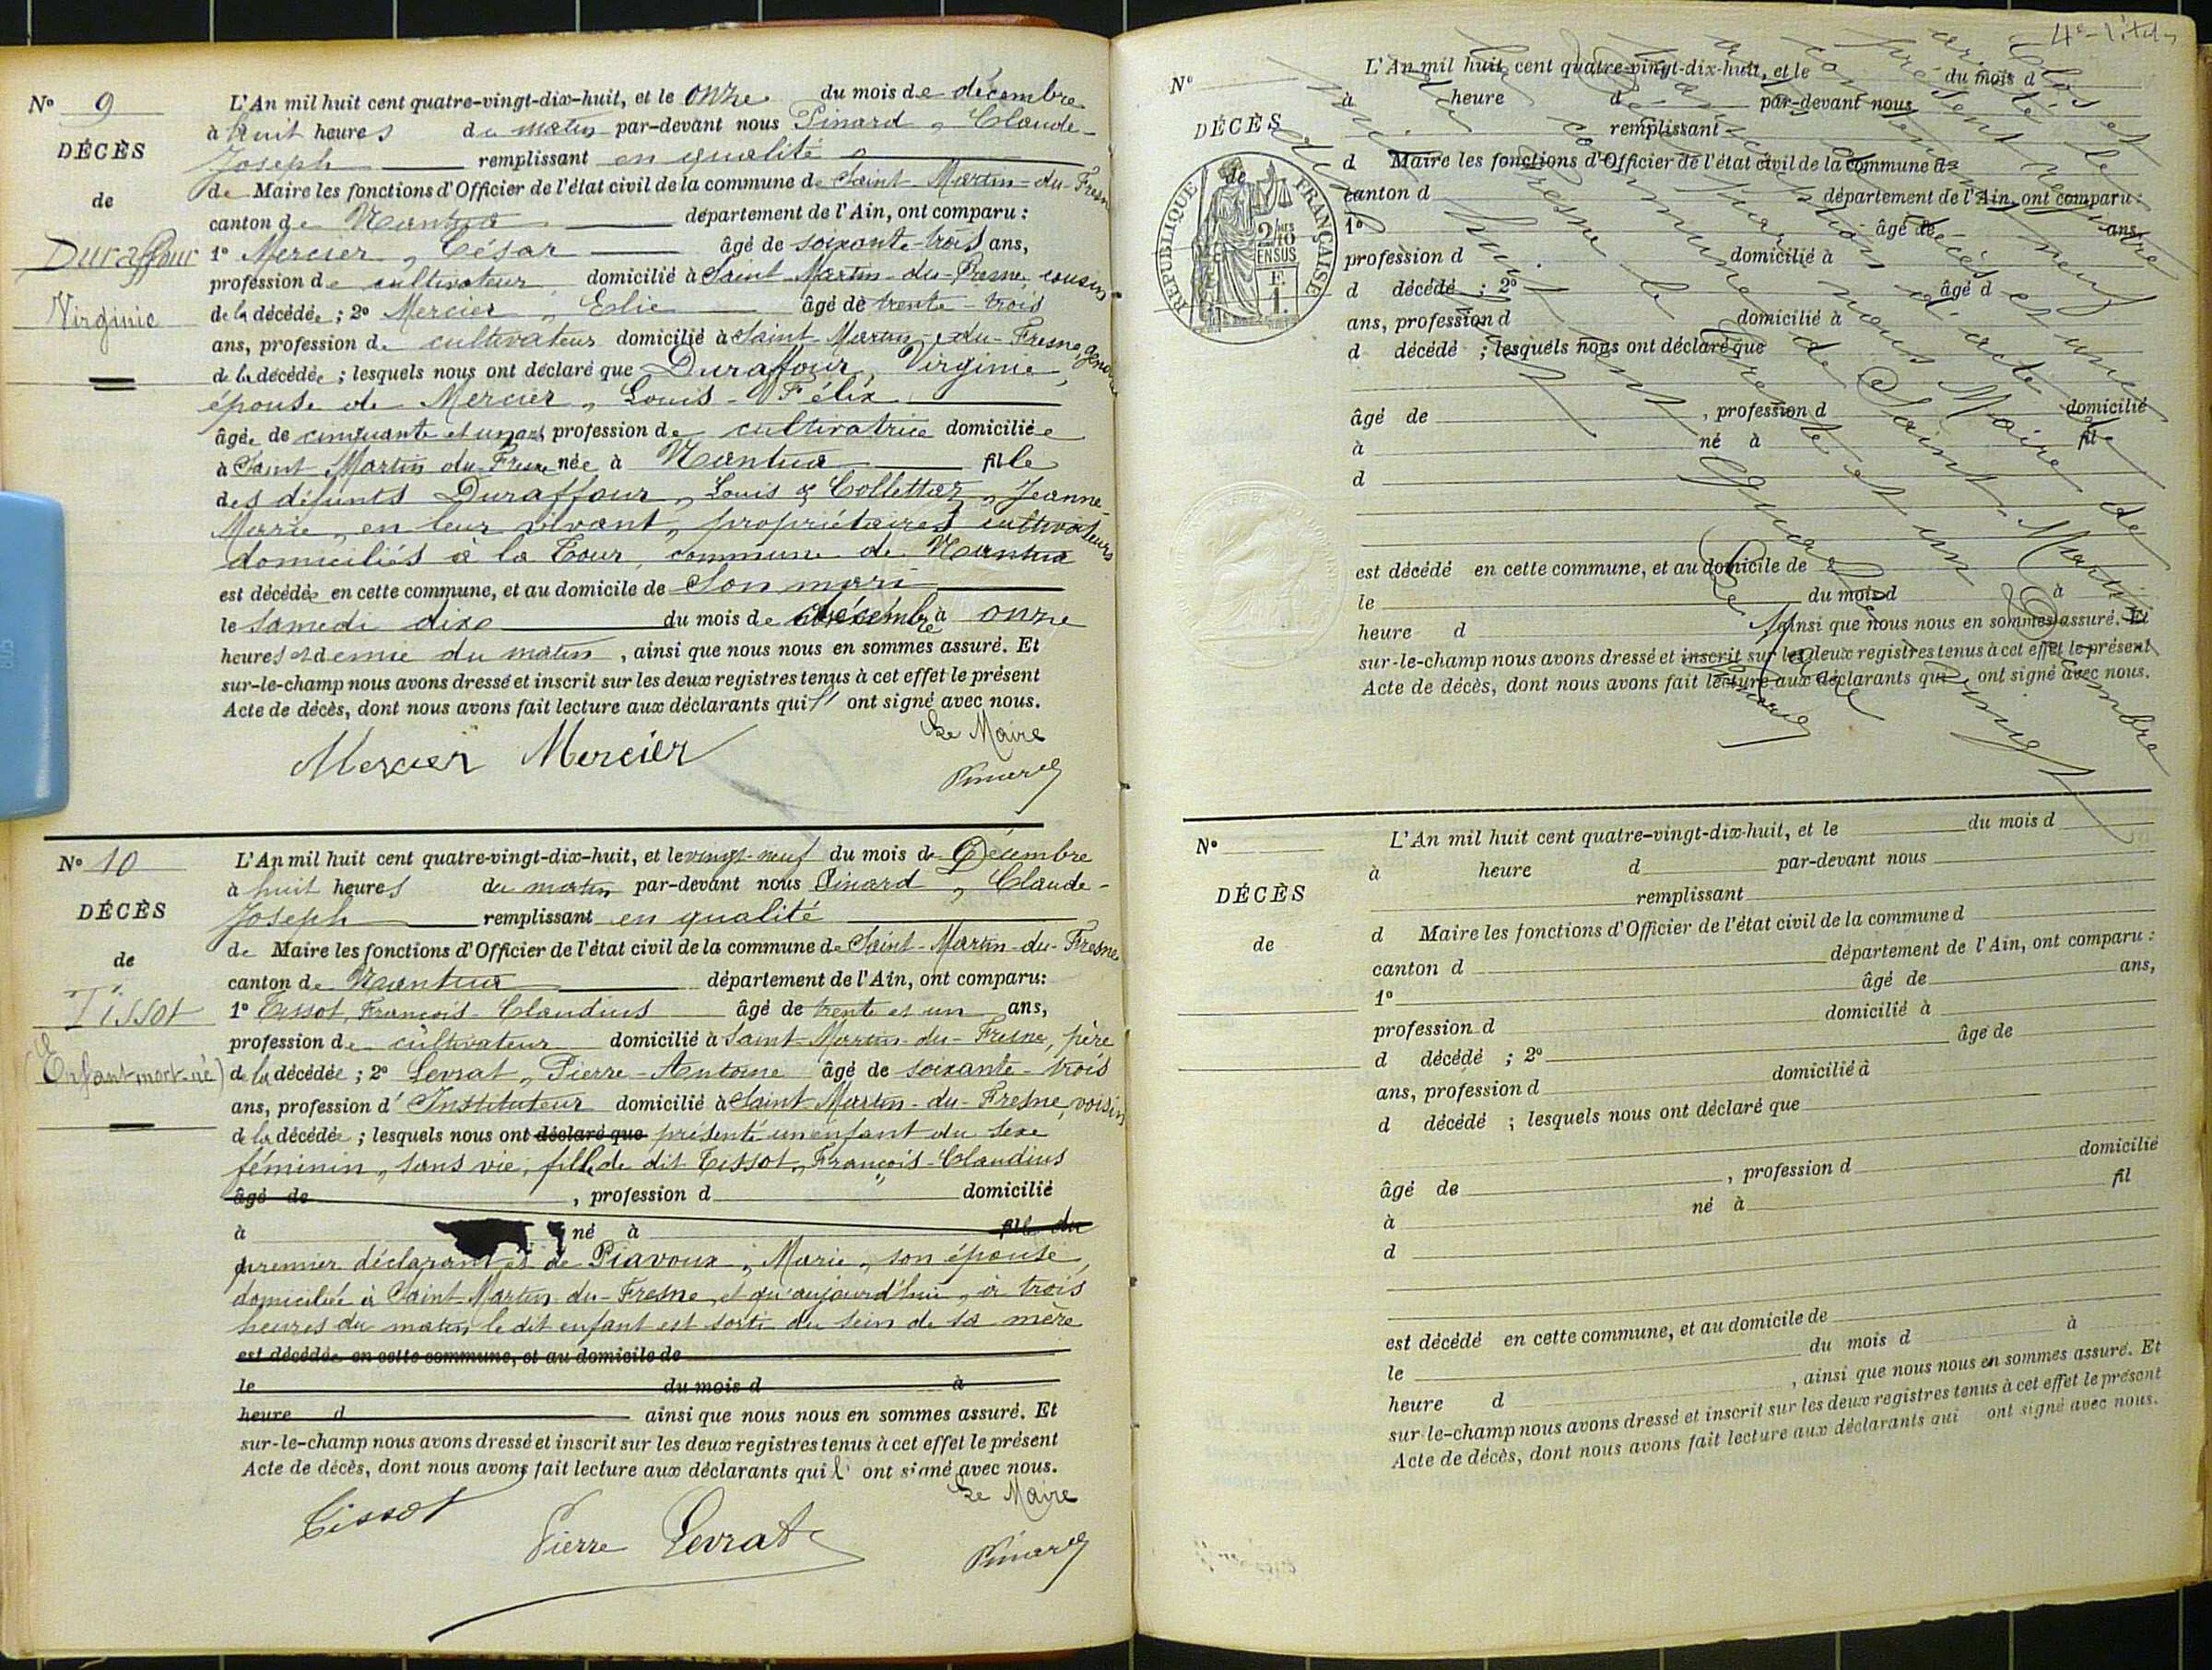 N° 9
DÉCÈS
de
Duraffour
Virginie
L'An mil huit cent quatre-vingt-dix-huit, et le onze du mois de décembre
à huit heures du matin par-devant nous Pinard, Claude-
Joseph remplissant en qualité
de Maire les fonctions d'Officier de l'état civil de la commune de Saint-Martin-du-Fresne
canton de Nantua département de l'Ain, ont comparu :
1° Mercier, César âgé de soixante-trois ans,
profession de cultivateur domicilié à Saint-Martin-du-Fresne, cousin
de la décédée ; 2° Mercier, Eslie âgé de trente-trois
ans, profession de cultivateur domicilié à Saint-Martin-du-Fresne, gendre
de la décédée ; lesquels nous ont déclaré que Duraffour, Virginie,
épouse de Mercier, Louis-Félix,
âgée de cinquante et un ans profession de cultivatrice domiciliée
à Saint-Martin-du-Fresne née à Nantua fille
des défunts Duraffour, Louis & Collettaz, Jeanne-
Marie, en leur vivant, propriétaires cultivateurs
domiciliés à la Tour, commune de Nantua
est décédée en cette commune, et au domicile de son mari
le samedi dix du mois de décembre à onze
heures et demie du matin, ainsi que nous nous en sommes assuré. Et
sur-le-champ nous avons dressé et inscrit sur les deux registres tenus à cet effet le présent
Acte de décès, dont nous avons fait lecture aux déclarants qui l' ont signé avec nous.
Le Maire
Mercier Mercier
Pinard
N° 10
DÉCÈS
de
Tissot
(Enfant mort-né)
L'An mil huit cent quatre-vingt-dix-huit, et le vingt-neuf du mois de Décembre
à huit heures du matin par-devant nous Pinard, Claude-
Joseph remplissant en qualité
de Maire les fonctions d'Officier de l'état civil de la commune de Saint-Martin-du-Fresne
canton de Nantua département de l'Ain, ont comparu:
1° Tissot, François-Claudius âgé de trente et un ans,
profession de cultivateur domicilié à Saint-Martin-du-Fresne, père
de la décédée ; 2° Levrat, Pierre-Antoine âgé de soixante-trois
ans, profession d'Instituteur domicilié à Saint-Martin-du-Fresne, voisin
de la décédée ; lesquels nous ont déclaré que présenté un enfant du sexe
féminin, sans vie, fille de dit Tissot, François-Claudius
âgé de , profession d domicilié
à né à fille du
premier déclarant et de Piavoux, Marie, son épouse,
domiciliée à Saint-Martin-du-Fresne, et qu'aujourd'hui, à trois
heures du matin, le dit enfant est sorti du sein de sa mère
est décédée en cette commune, et au domicile de
le du mois d à
heure d ainsi que nous nous en sommes assuré. Et
sur-le-champ nous avons dressé et inscrit sur les deux registres tenus à cet effet le présent
Acte de décès, dont nous avons fait lecture aux déclarants qui l' ont signé avec nous.
Le Maire
Tissot
Pierre Levrat
Pinard
N°
DÉCÈS
de
RÉPUBLIQUE FRANÇAISE
2/10
EN SUS
F.
1.
L'An mil huit cent quatre-vingt-dix-huit, et le du mois d
à heure d par-devant nous
remplissant
d Maire les fonctions d'Officier de l'état civil de la commune d
canton d département de l'Ain, ont comparu :
1° âgé de ans,
profession d domicilié à
d décédé ; 2° âgé d
ans, profession d domicilié à
d décédé ; lesquels nous ont déclaré que
âgé de , profession d domicilié
à né à fil
d
est décédé en cette commune, et au domicile de
le du mois d à
heure d , ainsi que nous nous en sommes assuré. Et
sur-le-champ nous avons dressé et inscrit sur les deux registres tenus à cet effet le présent
Acte de décès, dont nous avons fait lecture aux déclarants qui ont signé avec nous.
Clos et
arrêté le
présent registre
contenant
d'actes de
décès
nous Maire de
la commune de Saint-Martin
du Fresne le trente et un Décembre
mil huit cent quatre-vingt
dix huit
Le Maire
Pinard
N°
DÉCÈS
de
L'An mil huit cent quatre-vingt-dix-huit, et le du mois d
à heure d par-devant nous
remplissant
d Maire les fonctions d'Officier de l'état civil de la commune d
canton d département de l'Ain, ont comparu :
1° âgé de ans,
profession d domicilié à
d décédé ; 2° âgé de
ans, profession d domicilié à
d décédé ; lesquels nous ont déclaré que
âgé de , profession d domicilié
à né à fil
d
est décédé en cette commune, et au domicile de
le du mois d à
heure d , ainsi que nous nous en sommes assuré. Et
sur-le-champ nous avons dressé et inscrit sur les deux registres tenus à cet effet le présent
Acte de décès, dont nous avons fait lecture aux déclarants qui ont signé avec nous.